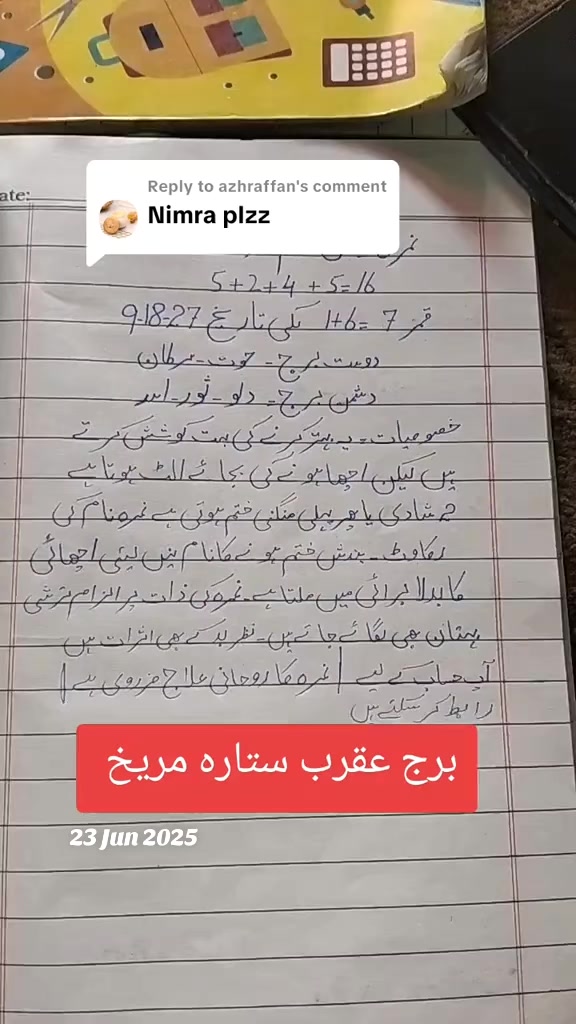 ate:
Reply to azhraffan's comment
Nimra plzz
5+2+4+5=16
قمر 7 =1+6 لکی تاریخ 27-18-9
دوست برج - حوت - سرطان
دشمن برج - دلو - ثور - اسد
خصوصیات - یہ بہتر کرنے کی بہت کوشش کرتے
ہیں لیکن اچھا ہونے کی بجائے الٹ ہوتا ہے
شادی یا پھر پہلی منگنی ختم ہوتی ہے نمرہ نام کی
رکاوٹ - بندش ختم ہونے کا نام نہیں لیتی اچھائی
کا بدلا برائی میں ملتا ہے - نمرہ کی ذات پر الزام ترشی
بہتان بھی لگائے جاتے ہیں - نظر بد کے بھی اثرات ہیں
آپ حساب کے لیے | نمرہ کا روحانی علاج ضروری ہے |
رابطہ کر سکتے ہیں
برج عقرب ستارہ مریخ
23 Jun 2025